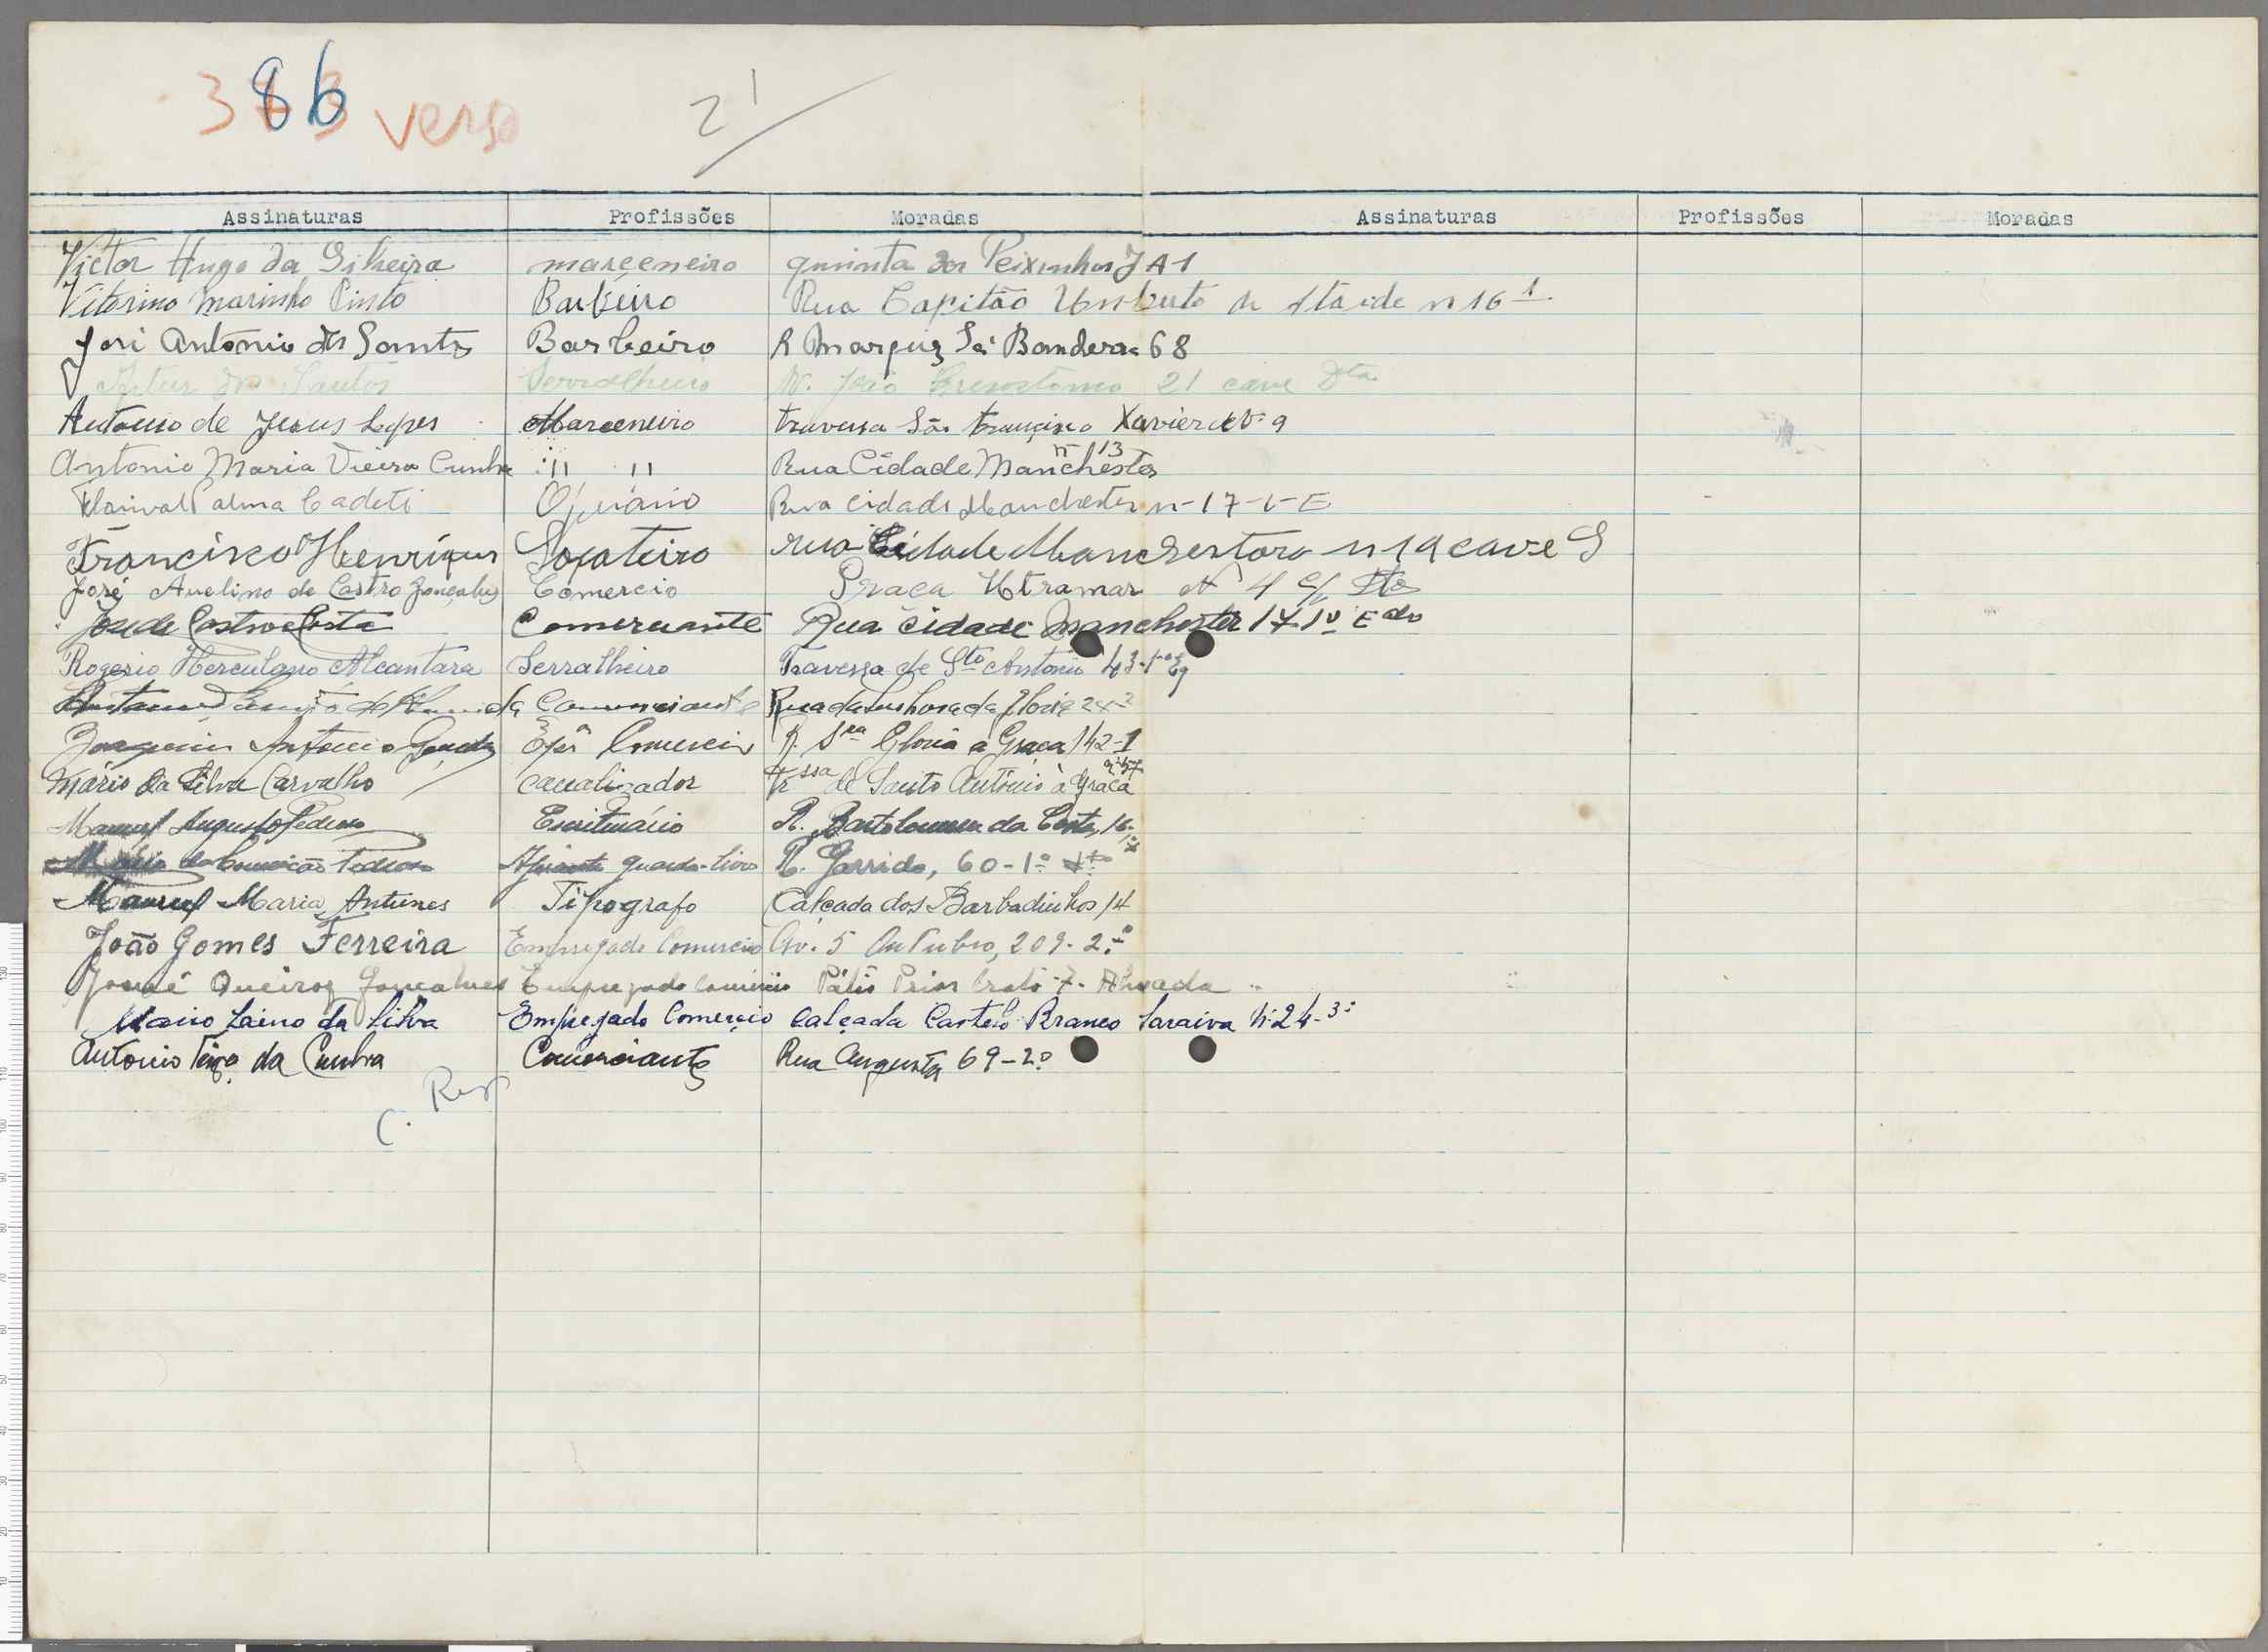 386 verso 21
Assinaturas Profissões Moradas Assinaturas Profissões Moradas
Victor Hugo da Silveira marceneiro quinta dos Peixinhos J A-1
Vitorino Marinho Pinto Barbeiro Rua Capitão Umberto de Ataide n 16 1
José Antonio dos Santos Barbeiro R Marquez Sá Bandera 68
Artur dos Santos Serralheiro R. João Crisostomo 21 cave Dta
Antonio de Jesus Lopes Marceneiro travessa São Francisco Xavier Nº 9
Antonio Maria Vieira Cunha " " Rua Cidade Manchester nº 113
Palma Cadeti Operário Rua Cidade Manchester n-17-1-E
Francisco Henriques Sapateiro rua Cidade Manchestora n 19 cave
José Avelino de Castro Gonçalves Comercio Praca Utramar Nº 4 c/ Dto
José de Castro e Costa Comerciante Rua Cidade Manchester 17 1º Edo
Rogerio Herculano Alcantara Serralheiro Travessa de Sto Antonio 43-1º Eq
Comerciante Rua da Senhora da Gloria 24
Joaquim Antonio Comercio R. Sra Gloria a Graça 142-1
Mário da Silva Carvalho canalizador Trssa de Santo António à Graça
Manuel Augusto Pedroso Escriturário R. Bartolomeu da Costa, 16
da Conceição Pedroso Ajudante guarda-livro R. Garrido, 60-1º dto
Manuel Maria Antunes Tipografo Calçada dos Barbadinhos 14
João Gomes Ferreira Empregado Comercio Av. 5 Outubro, 209-2.º
Josué Queiroz Gonçalves Empregado Comércio Pátio Prior Crato 7. Almada
Mario Laino da Silva Empregado Comerçio Calçada Castelo Branco Saraiva Nº 24-3º
Antonio da Cunha Comerciante Rua Augusta 69-2º
C. Res